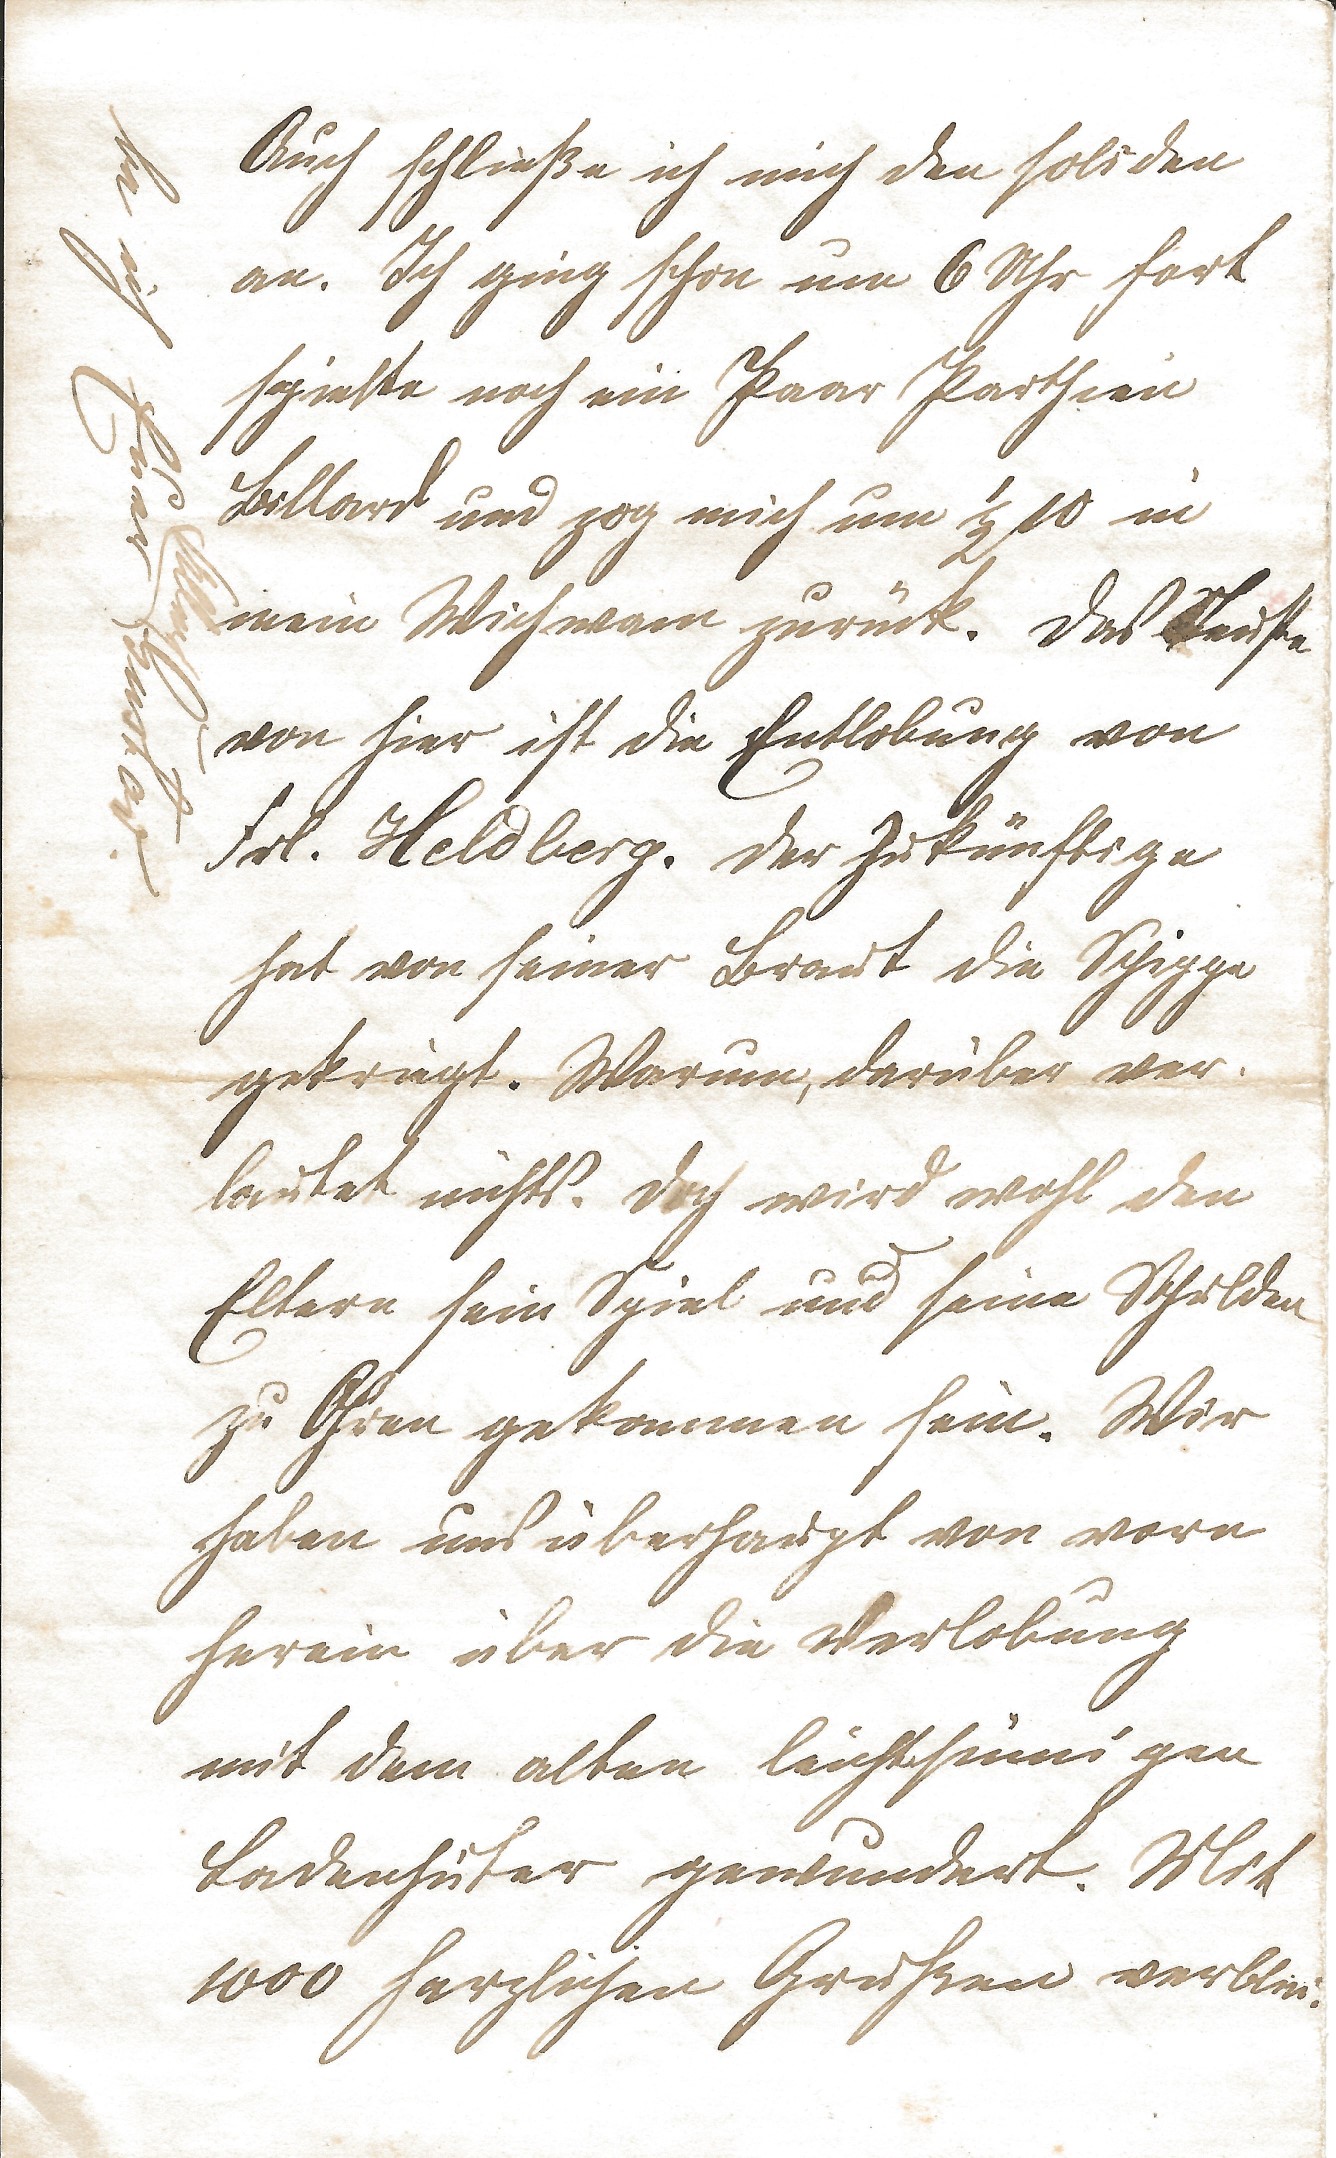 Auch schließe ich mich den soliden
an. Ich ging schon um 6 Uhr fort
spielte noch ein Paar Parthien
Billard und zog mich um ½ 10 in
mein Wichwam zurück. Das Neuste
von hier ist die Entlobung von
Frl. Heldberg. Der Zukünftige
hat von seiner Braut die Schippe
gekriegt. Warum, darüber ver-
lautet nichts. Doch wird wohl den
Eltern sein Spiel und seine Schulden
zu Ohren gekommen sein. Wir
haben uns überhaupt von vorn
herein über die Verlobung
mit dem alten leichtsinnigen
Ladenhüter gewundert. Mit
1000 herzlichen Grüßen verblei-
be ich Euer